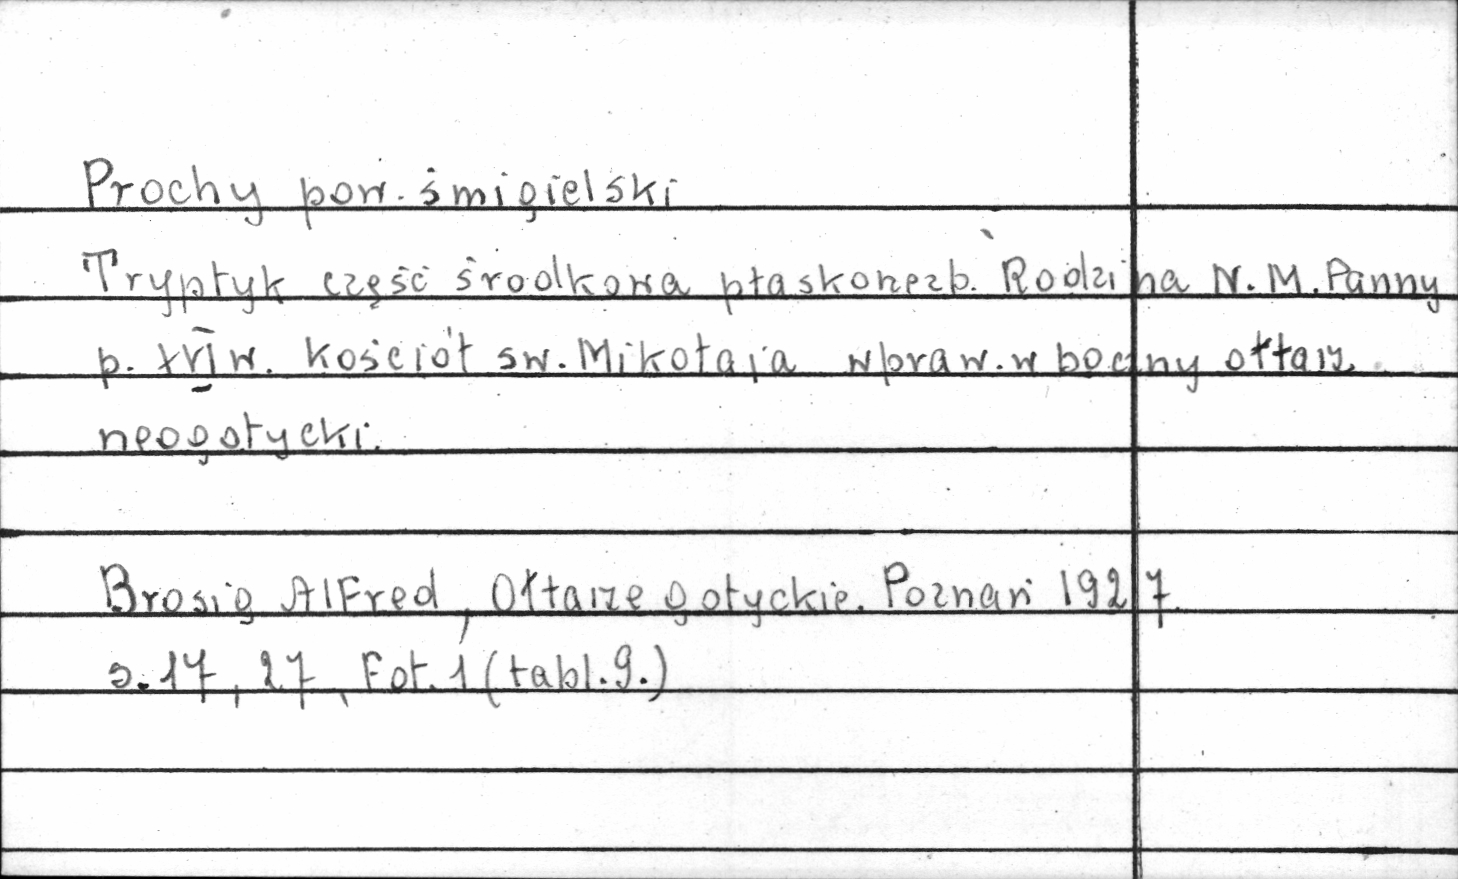 Prochy pow. śmigielski
Tryptyk część środkowa płaskorzeźb. Rodzina N. M. Panny
p. XVI w. Kościół św. Mikołaja wpraw. w boczny ołtarz
neogotycki.
Brosig Alfred, Ołtarze gotyckie. Poznań 1927.
s. 17, 27, Fot. 1 (tabl. 9.)